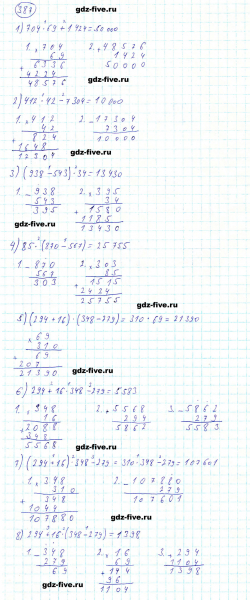 387
gdz-five.ru
1) 704·69+1424=50000
1. ×704 2. +48576
69 1424
+6336 50000
4224
48576
gdz-five.ru
2) 412·42-7304=10000
1. ×412 2. -17304
42 7304
+824 10000
1648
17304
gdz-five.ru
3) (938-543)·34=13430
1. -938 2. ×395
543 34
395 +1580
1185
13430
gdz-five.ru
4) 85·(870-567)=25755
1. -870 2. ×303
567 85
303 1515
2424
25755
gdz-five.ru
5) (294+16)·(348-279)=310·69=21390
×69
310
+69
207
21390
gdz-five.ru
6) 294+16·348-279=5583
1. ×348 2. +5568 3. -5862
16 294 279
+2088 5862 5583
348
5568
gdz-five.ru
7) (294+16)·348-279=310·348-279=107601
1. ×348 2. -107880
310 279
+348 107601
1044
107880
gdz-five.ru
8) 294+16·(348-279)=1398
1. -348 2. ×16 3. +294
279 69 1104
69 +144 1398
96
1104
gdz-five.ru